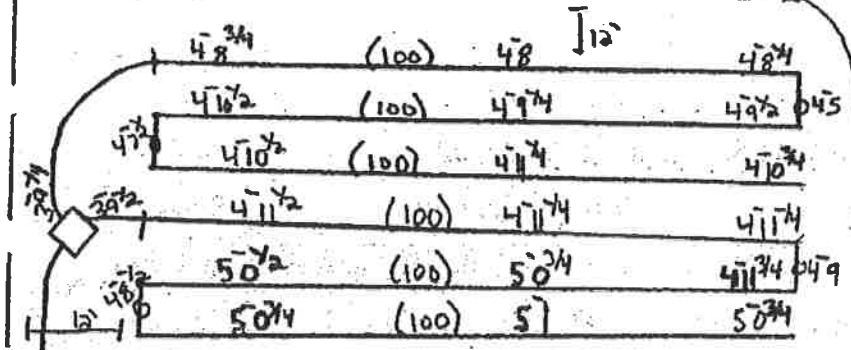 12'
4'8 3/4 (100) 4'8 4'8 1/4
4'10 1/2 (100) 4'9 1/4 4'9 1/2 4'5
4'7 1/2
4'10 1/2 (100) 4'11 1/4 4'10 3/4
4'11 1/2 (100) 4'11 1/4 4'11 1/4
5'0 1/2 (100) 5'0 3/4 4'11 3/4 4'9
4'8 1/2
12' 5'0 3/4 (100) 5'1 5'0 3/4